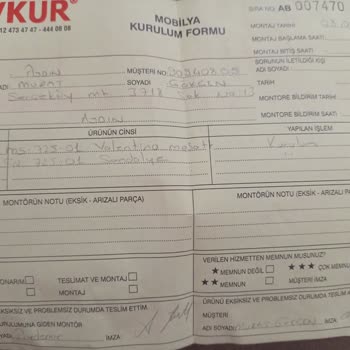 YKUR
MOBİLYA
KURULUM FORMU
SIRA NO: AB 007470
12 473 47 47 - 444 08 08
MONTAJ TARİHİ
MONTAJ BAŞLAMA SAATİ
MONTAJ BİTİŞ SAATİ
MÜŞTERİ NO:
SORUNUN İLETİLDİĞİ KİŞİ
ADI SOYADI
MURAT
SOYADI
GÖKGEN
MONTÖRE BİLDİRİM TARİHİ
MONTÖRE BİLDİRİM SAATİ
ÜRÜNÜN CİNSİ
YAPILAN İŞLEM
725-01 Valentino
725-01 Sandalye
MONTÖRÜN NOTU (EKSİK - ARIZALI PARÇA)
MONTÖRÜN NOTU (EKSİK - ARIZALI PARÇA)
ONARIM
TESLİMAT VE MONTAJ
MONTAJ
VERİLEN HİZMETTEN MEMNUN MUSUNUZ?
★ MEMNUN DEĞİL
★★★ ÇOK MEMNUN
★★ MEMNUN
MÜŞTERİ İMZA
EKSİKSİZ VE PROBLEMSİZ DURUMDA TESLİM ETTİM
KURULUMUNA GİDEN MONTÖR
ADI SOYADI
İMZA:
ÜRÜNÜ EKSİKSİZ VE PROBLEMSİZ DURUMDA TESLİM
MÜŞTERİ
ADI SOYADI
İMZA